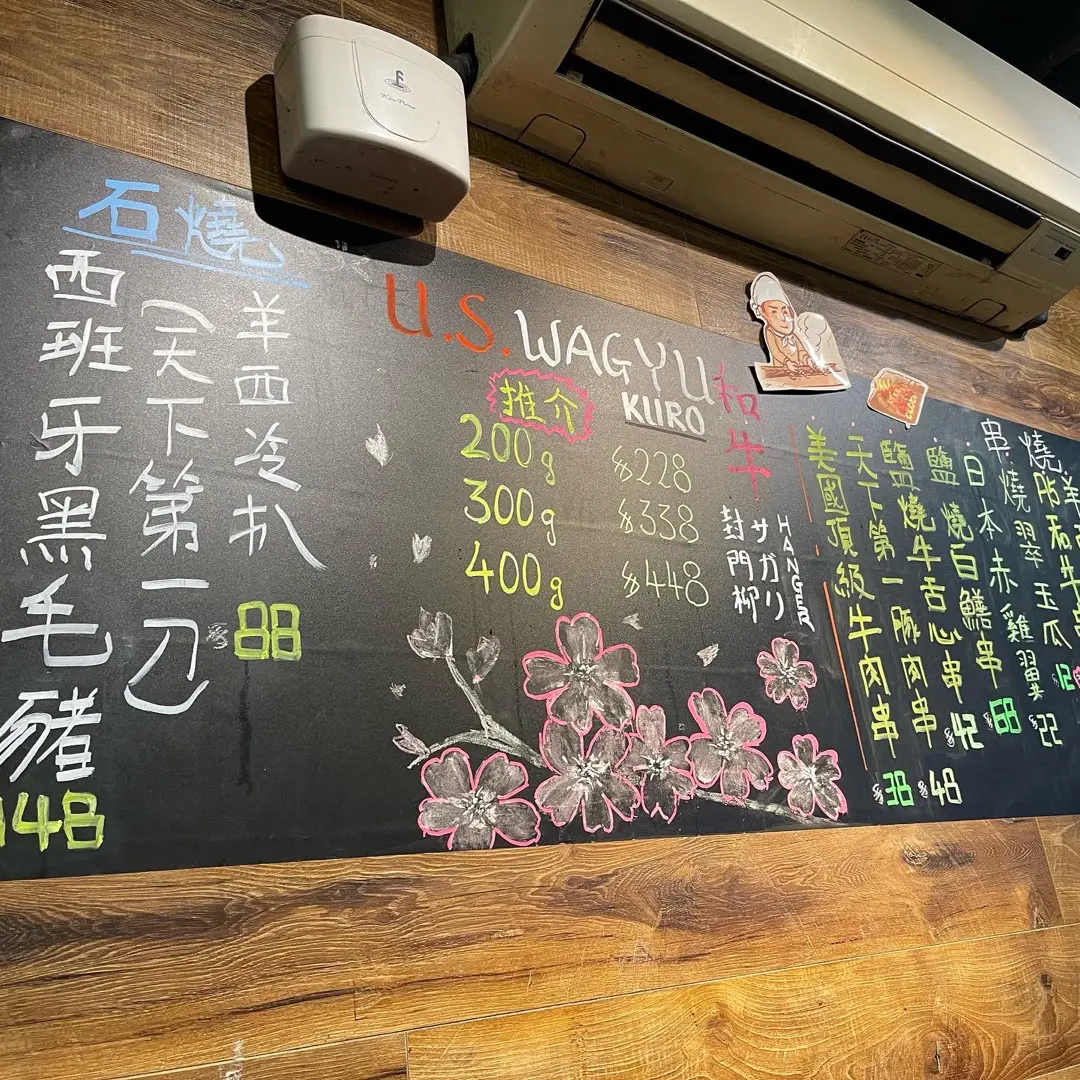 石燒
羊西冷扒
$88
(天下第一刀)
西班牙黑毛豬
148
U.S. WAGYU
和牛
KIIRO
推介
200g $228
300g $338
400g $448
HANGER
サガリ
封門柳
串燒
翠玉瓜
$22
日本赤雞翼
$68
鹽燒白鱔串
$42
鹽燒牛舌心串
天下第一豚肉串
$48
美國頂級牛肉串
$38